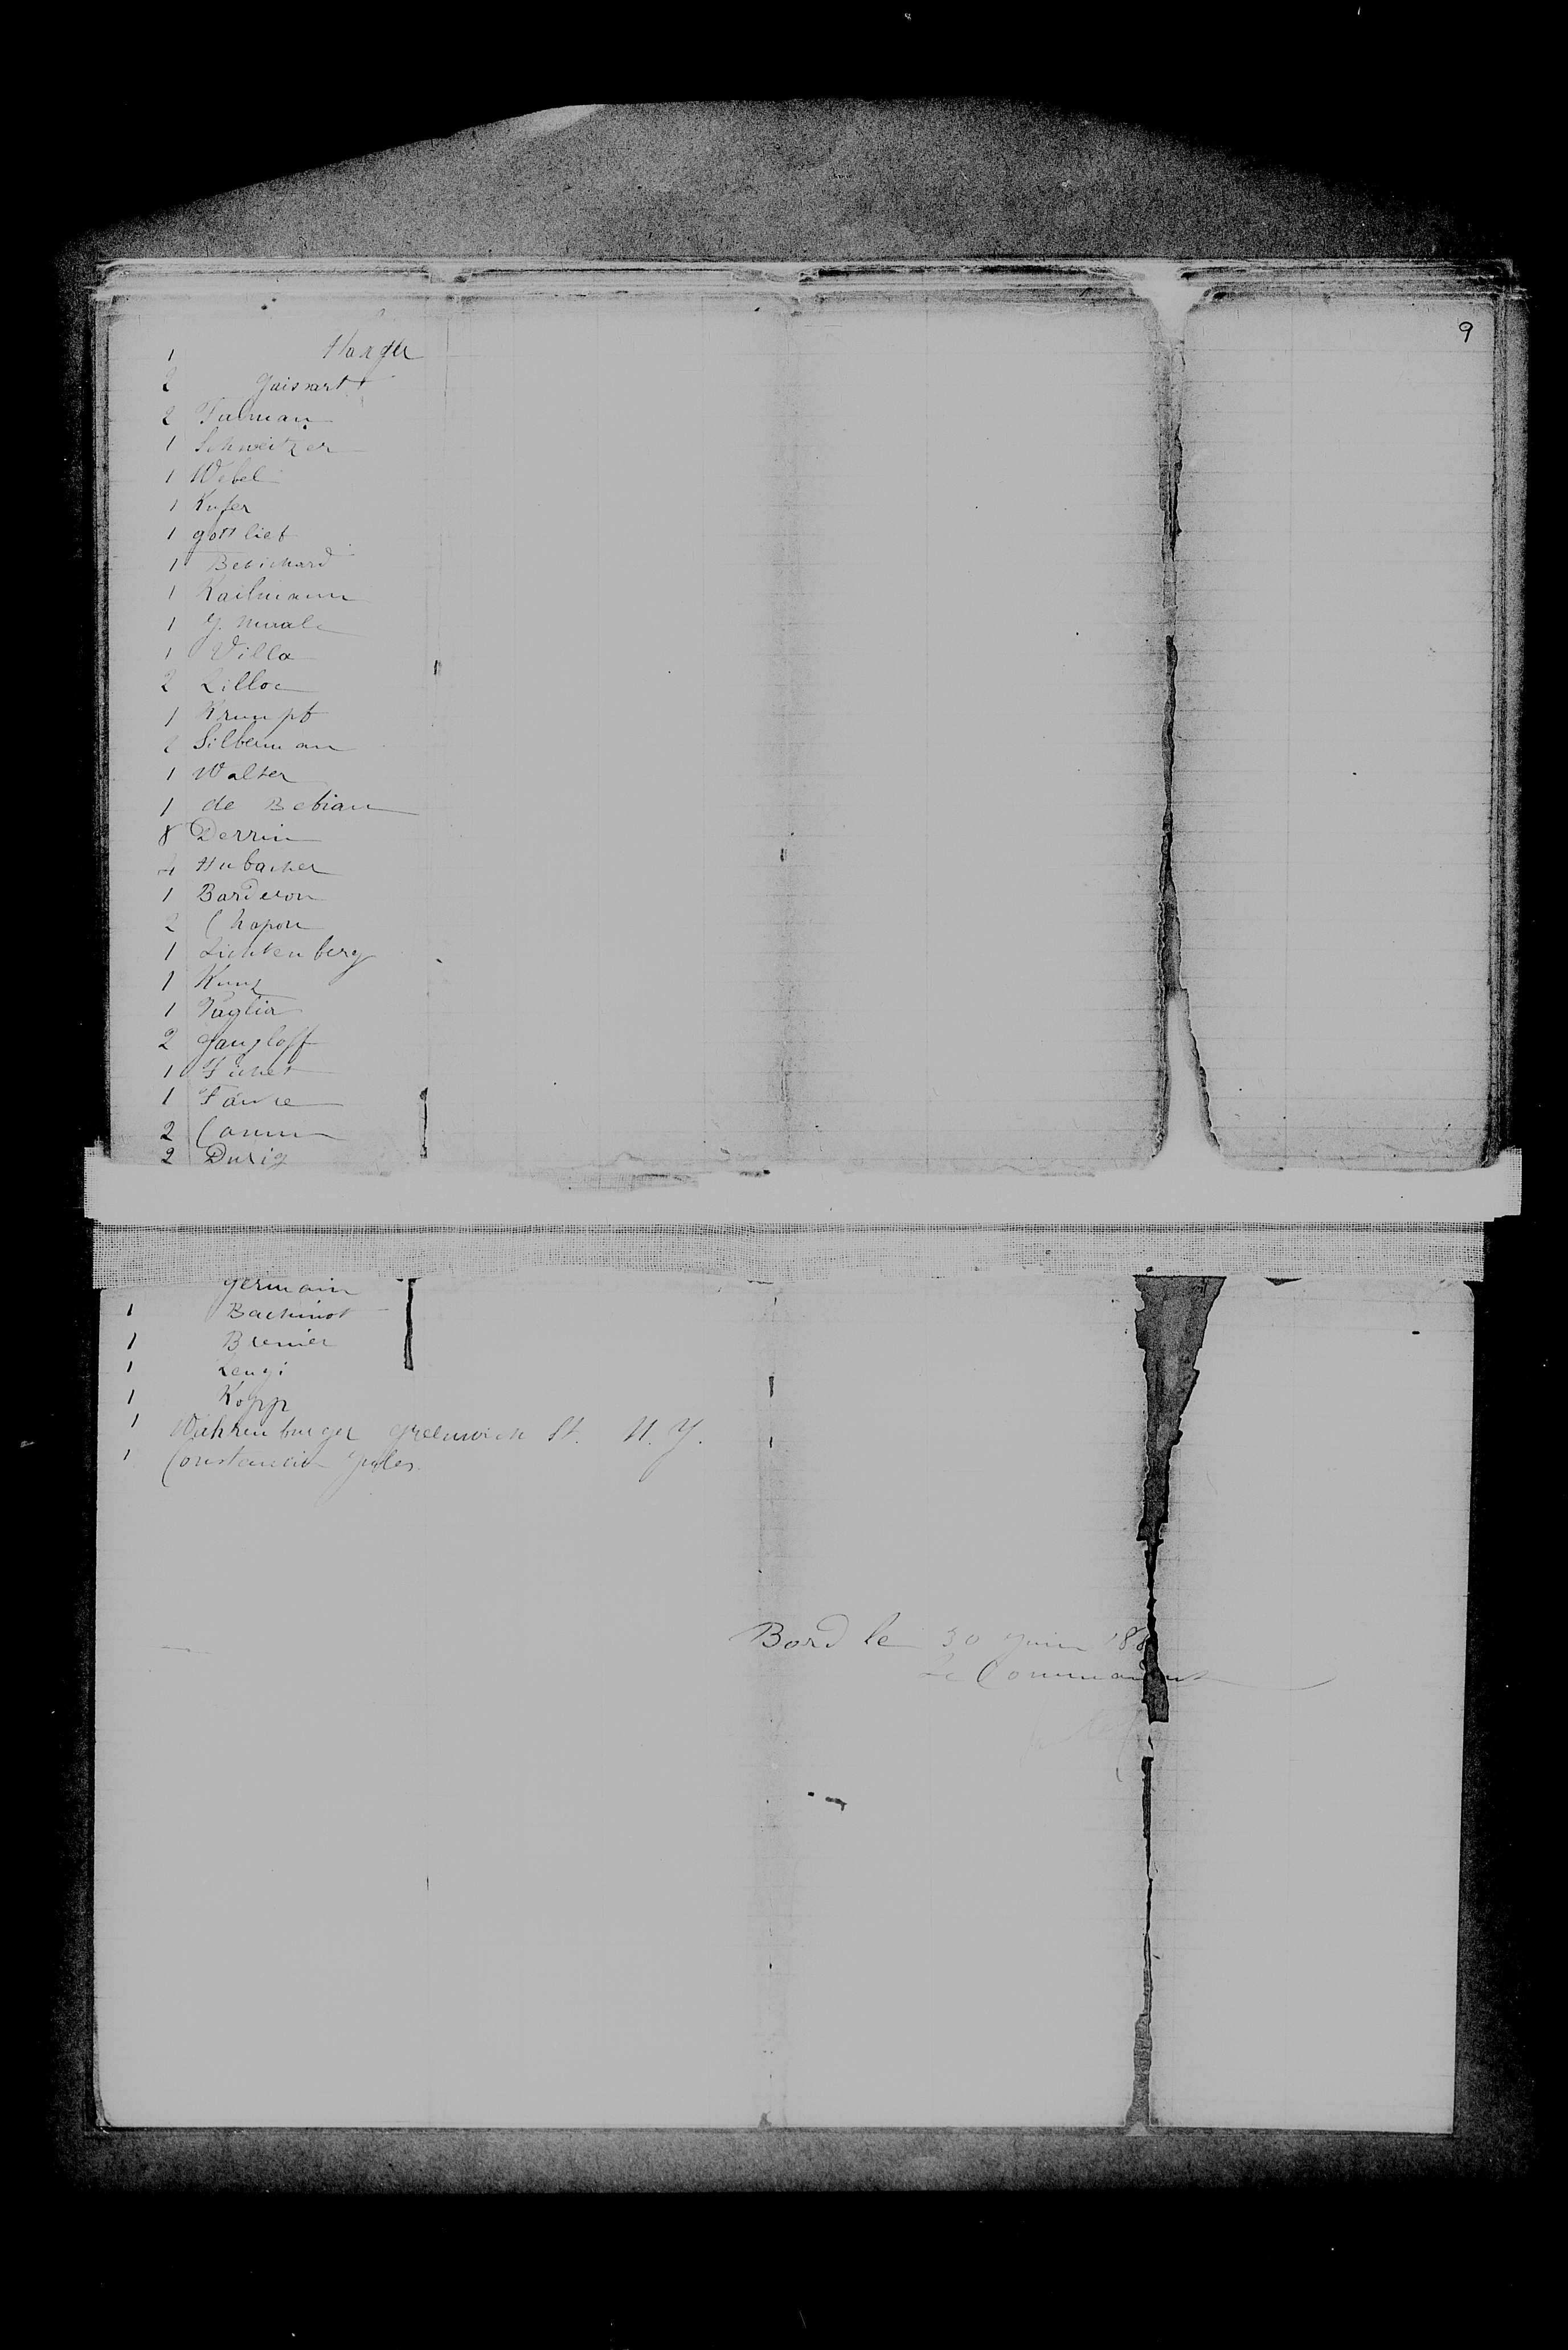 9
1 Harger
2 Goissart
2 Talman
1 Schweitzer
1 Webel
1 Kufer
1 gottlieb
1 Bebichard
1 Kailmann
1
1 Villa
2 Lilloe
1 Krumpt
2 Silberman
1 Walter
1 de Bebian
8 Derrin
4 Hubacher
1 Barderon
2 Chapon
1 Lichtenberg
1 Kunz
1 Paglia
2 gangloff
1 Fichet
1 Faure
2
2 Durig
germain
1 Bachinot
1 Bremier
1 Lengi
1 Kopp
1 Wahrenburger greenwich St. N. Y.
1 Constancia Jules
Bord le 30 Juin 188
Le Commandant